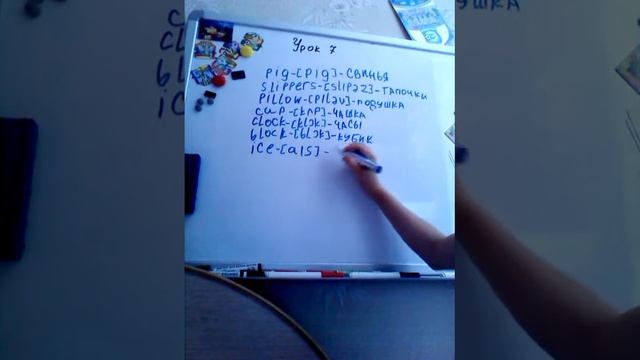 Урок 7
pig-[pig]-свинья
slippers-[slipəz]-тапочки
pillow-[piləu]-подушка
cup-[kʌp]-чашка
clock-[klɔk]-часы
block-[blɔk]-кубик
ice-[ais]-